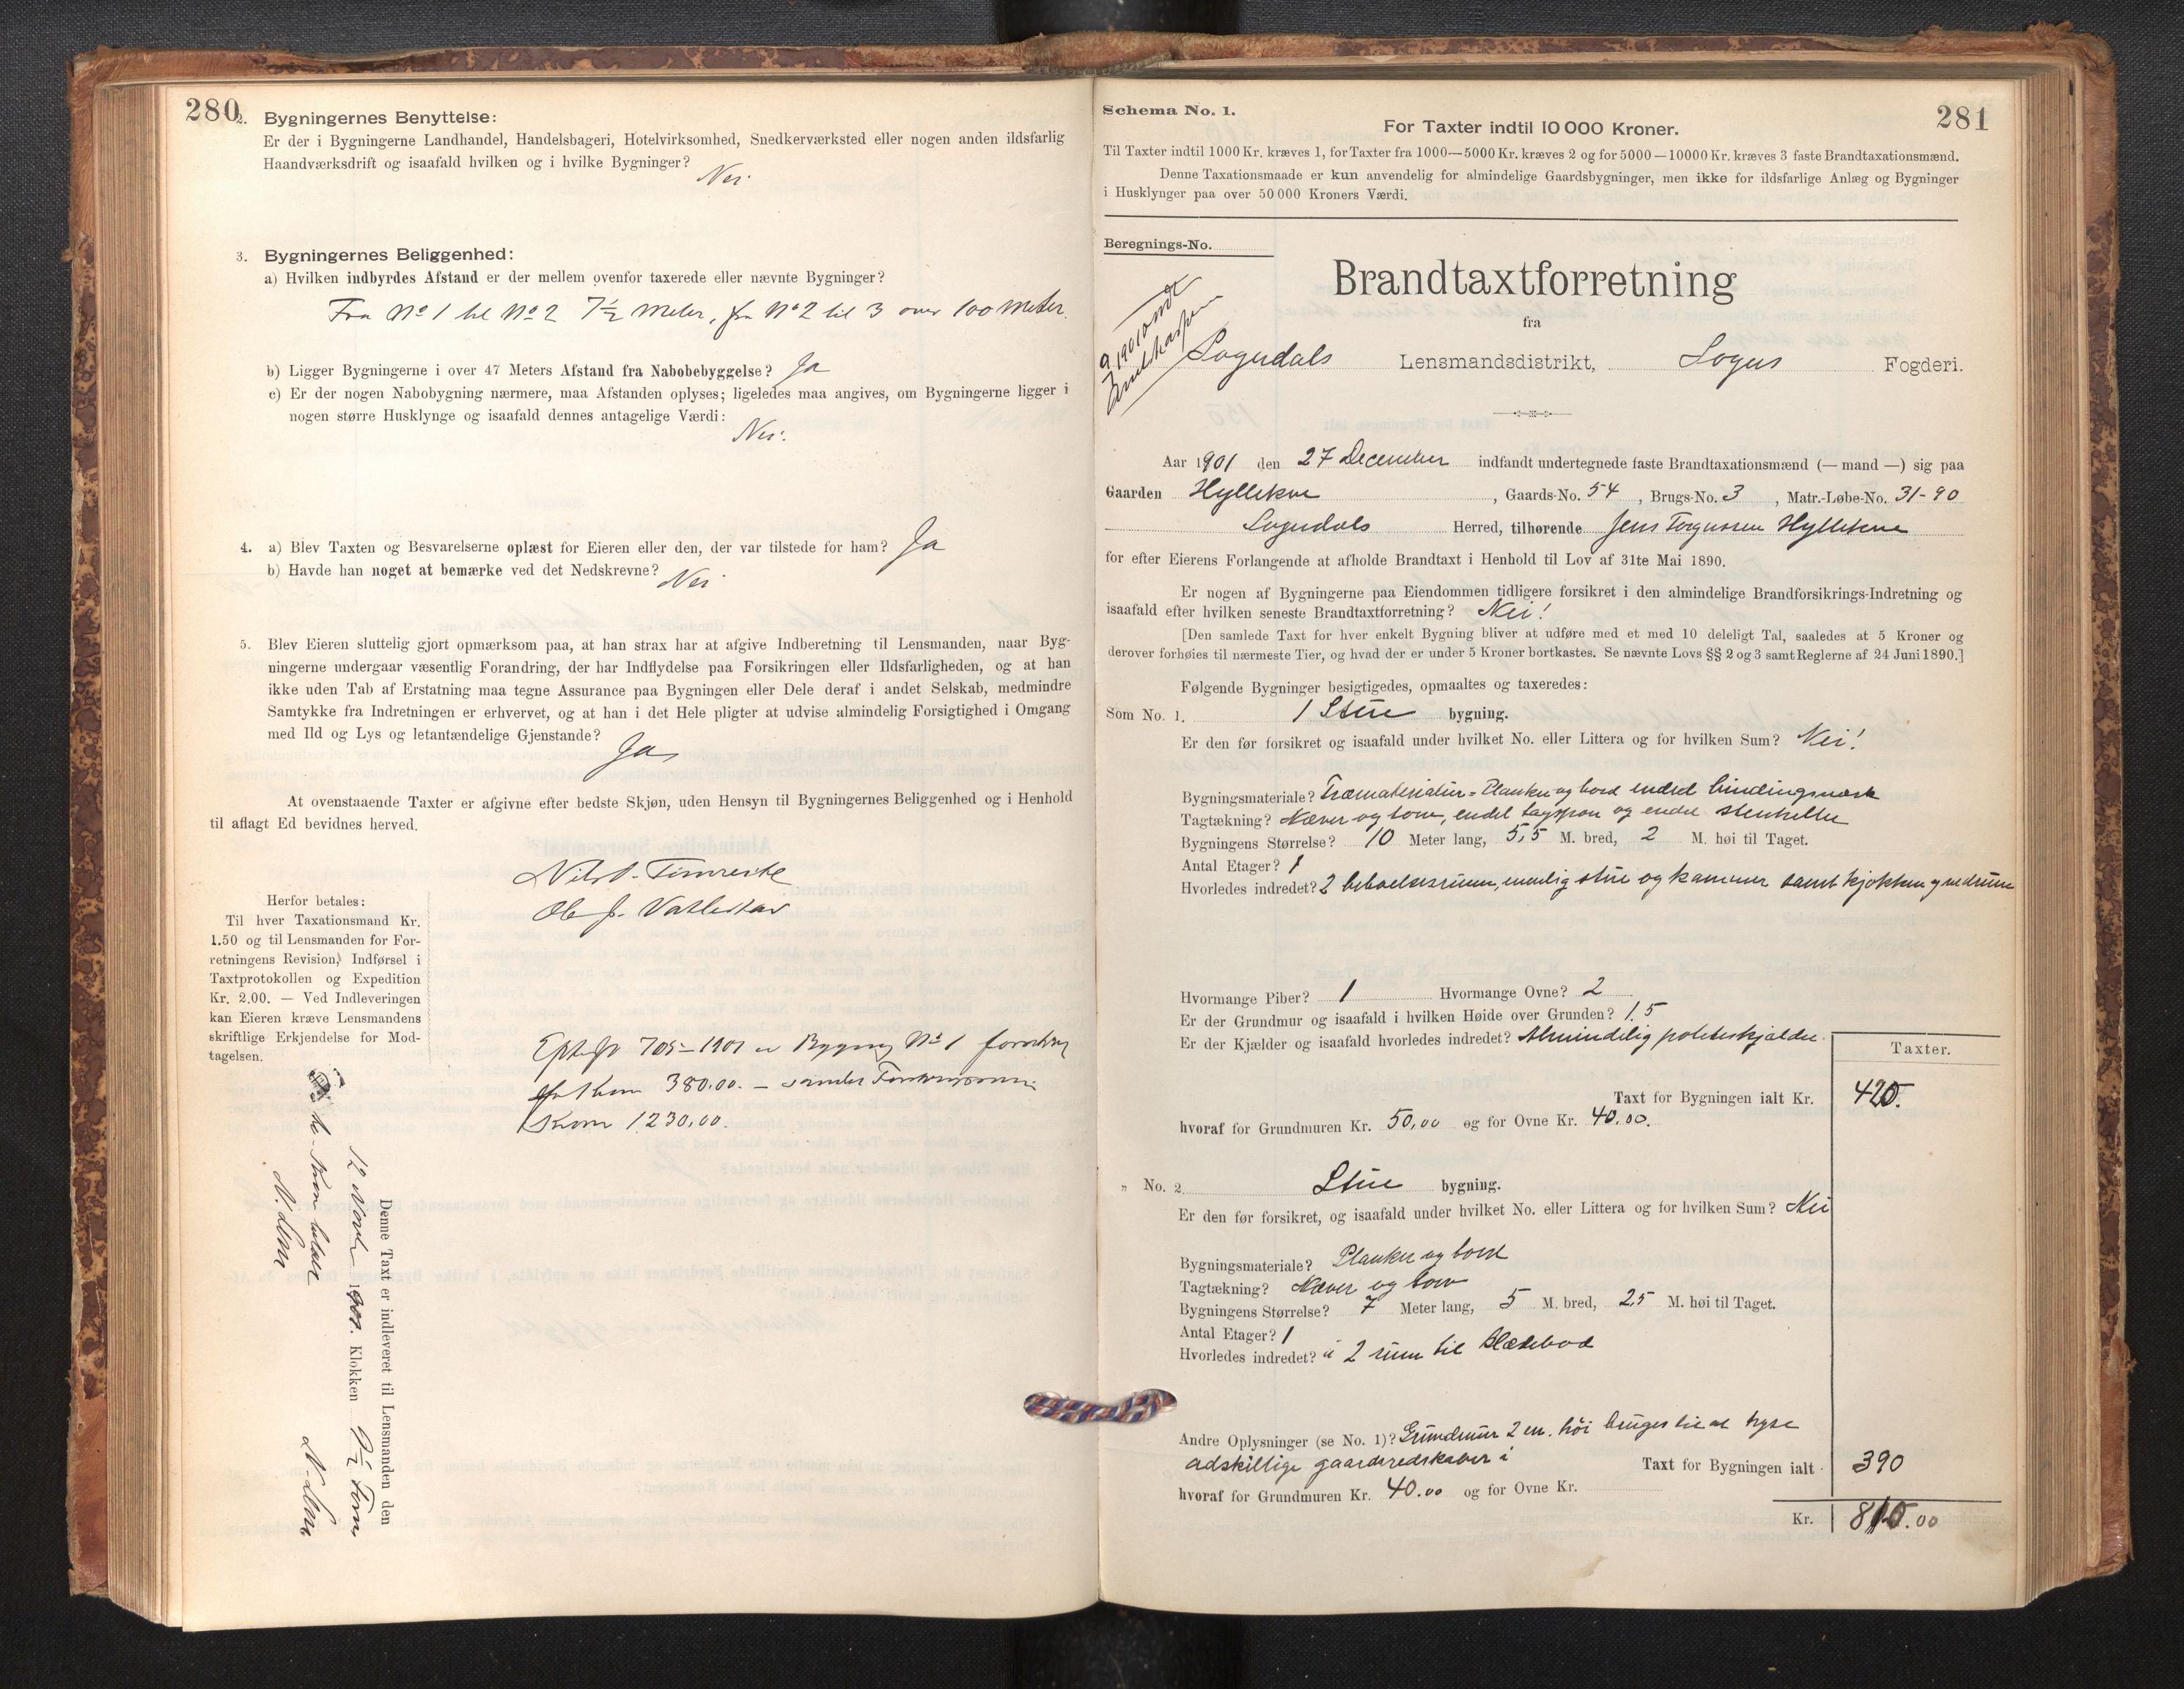 280
2. Bygningernes Benyttelse:
Er der i Bygningerne Landhandel, Handelsbageri, Hotelvirksomhed, Snedkerværksted eller nogen anden ildsfarlig
Haandværksdrift og isaafald hvilken og i hvilke Bygninger?
Nei
3. Bygningernes Beliggenhed:
a) Hvilken indbyrdes Afstand er der mellem ovenfor taxerede eller nævnte Bygninger?
Fra No 1 til No 2 7½ Meter, fra No 2 til 3 over 100 Meter.
b) Ligger Bygningerne i over 47 Meters Afstand fra Nabobebyggelse? Ja
c) Er der nogen Nabobygning nærmere, maa Afstanden oplyses; ligeledes maa angives, om Bygningerne ligger i
nogen større Husklynge og isaafald dennes antagelige Værdi:
Nei.
4. a) Blev Taxten og Besvarelserne oplæst for Eieren eller den, der var tilstede for ham? Ja
b) Havde han noget at bemærke ved det Nedskrevne?
Nei
5. Blev Eieren sluttelig gjort opmærksom paa, at han strax har at afgive Indberetning til Lensmanden, naar Byg-
ningerne undergaar væsentlig Forandring, der har Indflydelse paa Forsikringen eller Ildsfarligheden, og at han
ikke uden Tab af Erstatning maa tegne Assurance paa Bygningen eller Dele deraf i andet Selskab, medmindre
Samtykke fra Indretningen er erhvervet, og at han i det Hele pligter at udvise almindelig Forsigtighed i Omgang
med Ild og Lys og letantændelige Gjenstande?
Ja
At ovenstaaende Taxter er afgivne efter bedste Skjøn, uden Hensyn til Bygningernes Beliggenhed og i Henhold
til aflagt Ed bevidnes herved.
Ole J. Vatlestad
Herfor betales:
Til hver Taxationsmand Kr.
1.50 og til Lensmanden for For-
retningens Revision, Indførsel i
Taxtprotokollen og Expedition
Kr. 2.00. — Ved Indleveringen
kan Eieren kræve Lensmandens
skriftlige Erkjendelse for Mod-
tagelsen.
705-1901 er Bygning No 1
380.00. -
Kroner 1230,00.
Denne Taxt er indleveret til Lensmanden den
12 Novbr 1901. Klokken 9½ Form
Schema No. 1.
281
For Taxter indtil 10 000 Kroner.
Til Taxter indtil 1000 Kr. kræves 1, for Taxter fra 1000—5000 Kr. kræves 2 og for 5000—10000 Kr. kræves 3 faste Brandtaxationsmænd.
Denne Taxationsmaade er kun anvendelig for almindelige Gaardsbygninger, men ikke for ildsfarlige Anlæg og Bygninger
i Husklynger paa over 50 000 Kroners Værdi.
Beregnings-No.
Brandtaxtforretning
fra
Sogndals Lensmandsdistrikt, Sogns Fogderi.
Aar 1901 den 27 December indfandt undertegnede faste Brandtaxationsmænd (— mand —) sig paa
Gaarden Hyllekve, Gaards-No. 54, Brugs-No. 3, Matr.-Løbe-No. 31-90
Sogndals Herred, tilhørende Jens Torgussen Hyllekve
for efter Eierens Forlangende at afholde Brandtaxt i Henhold til Lov af 31te Mai 1890.
Er nogen af Bygningerne paa Eiendommen tidligere forsikret i den almindelige Brandforsikrings-Indretning og
isaafald efter hvilken seneste Brandtaxtforretning? Nei!
[Den samlede Taxt for hver enkelt Bygning bliver at udføre med et med 10 deleligt Tal, saaledes at 5 Kroner og
derover forhøies til nærmeste Tier, og hvad der er under 5 Kroner bortkastes. Se nævnte Lovs §§ 2 og 3 samt Reglerne af 24 Juni 1890.]
Følgende Bygninger besigtigedes, opmaaltes og taxeredes:
Som No. 1. 1 Stue bygning.
Er den før forsikret og isaafald under hvilket No. eller Littera og for hvilken Sum? Nei!
Bygningsmateriale? Træmaterialier = Planker og bord endel bindingsværk
Tagtækning? Næver og torv, endel tagspon og endel stenheller
Bygningens Størrelse? 10 Meter lang, 5,5 M. bred, 2 M. høi til Taget.
Antal Etager? 1
Hvorledes indredet? 2 beboelsesrum, nemlig stue og kammer samt kjøkken
Hvormange Piber? 1 Hvormange Ovne? 2
Er der Grundmur og isaafald i hvilken Høide over Grunden? 1.5
Er der Kjælder og isaafald hvorledes indredet? Almindelig poteteskjælder.
Taxter.
Taxt for Bygningen ialt Kr. 420.
hvoraf for Grundmuren Kr. 50,00 og for Ovne Kr. 40.00.
„ No. 2. Stue bygning.
Er den før forsikret, og isaafald under hvilket No. eller Littera og for hvilken Sum? Nei
Bygningsmateriale? Planker og bord
Tagtækning? Næver og torv
Bygningens Størrelse? 7 Meter lang, 5 M. bred, 2,5 M. høi til Taget.
Antal Etager? 1
Hvorledes indredet? i 2 rum til Klædebod
Andre Oplysninger (se No. 1)? Grundmur 2 m. høi bruges til at
adskillige gaardsredskaber i
Taxt for Bygningen ialt 390
hvoraf for Grundmuren Kr. 40.00 og for Ovne Kr.
Kr. 810.00